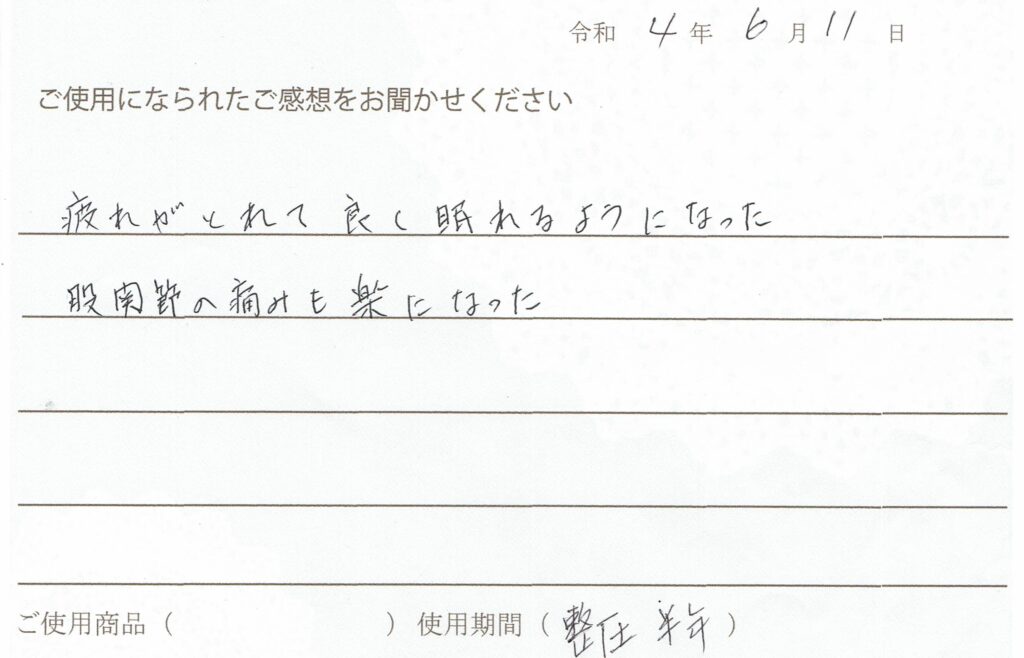 令和 4 年 6 月 11 日
ご使用になられたご感想をお聞かせください
疲れがとれて良く眠れるようになった
股関節の痛みも楽になった
ご使用商品（　　　　　　　　）使用期間（整圧 半年）